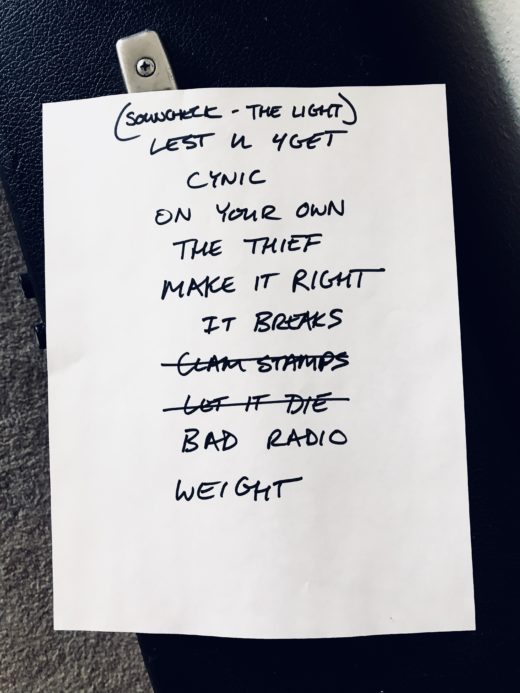 (SOUNDCHECK - THE LIGHT)
LEST U 4GET
CYNIC
ON YOUR OWN
THE THIEF
MAKE IT RIGHT
IT BREAKS
CLAM STAMPS
LET IT DIE
BAD RADIO
WEIGHT